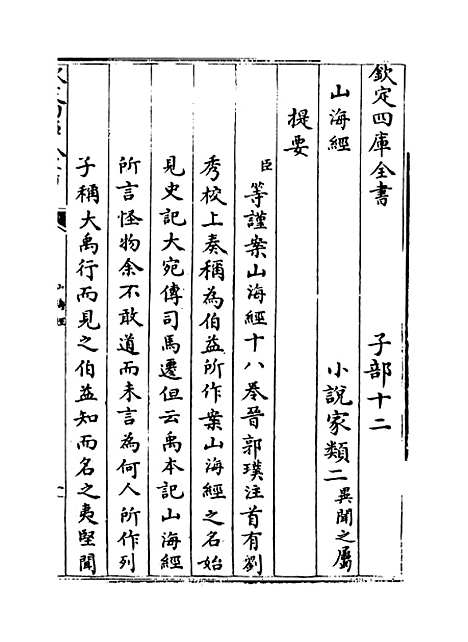 欽定四庫全書　子部十二
山海經　小說家類二異聞之屬
提要
臣等謹案山海經十八卷晉郭璞注首有劉
秀校上奏稱為伯益所作案山海經之名始
見史記大宛傳司馬遷但云禹本記山海經
所言怪物余不敢道而未言為何人所作列
子稱大禹行而見之伯益知而名之夷堅聞
山海經